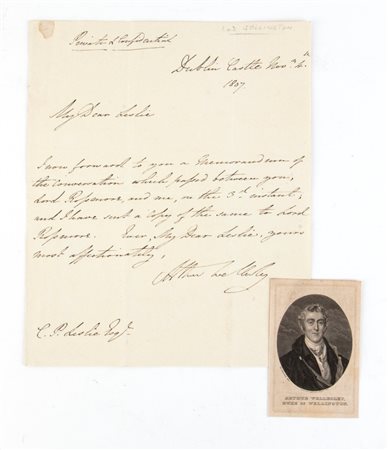 Private & Confidential
Dublin Castle Novr. 4th
1807.
My Dear Leslie
I now forward to you a Memorandum of
the Conversation which passed between you,
Lord Rossmore, and me, on the 3d. instant;
and I have sent a Copy of the same to Lord
Rossmore. Ever, My Dear Leslie, yours
most affectionately,
Arthur Wellesley
C. P. Leslie Esqr.
ARTHUR WELLESLEY,
DUKE OF WELLINGTON.